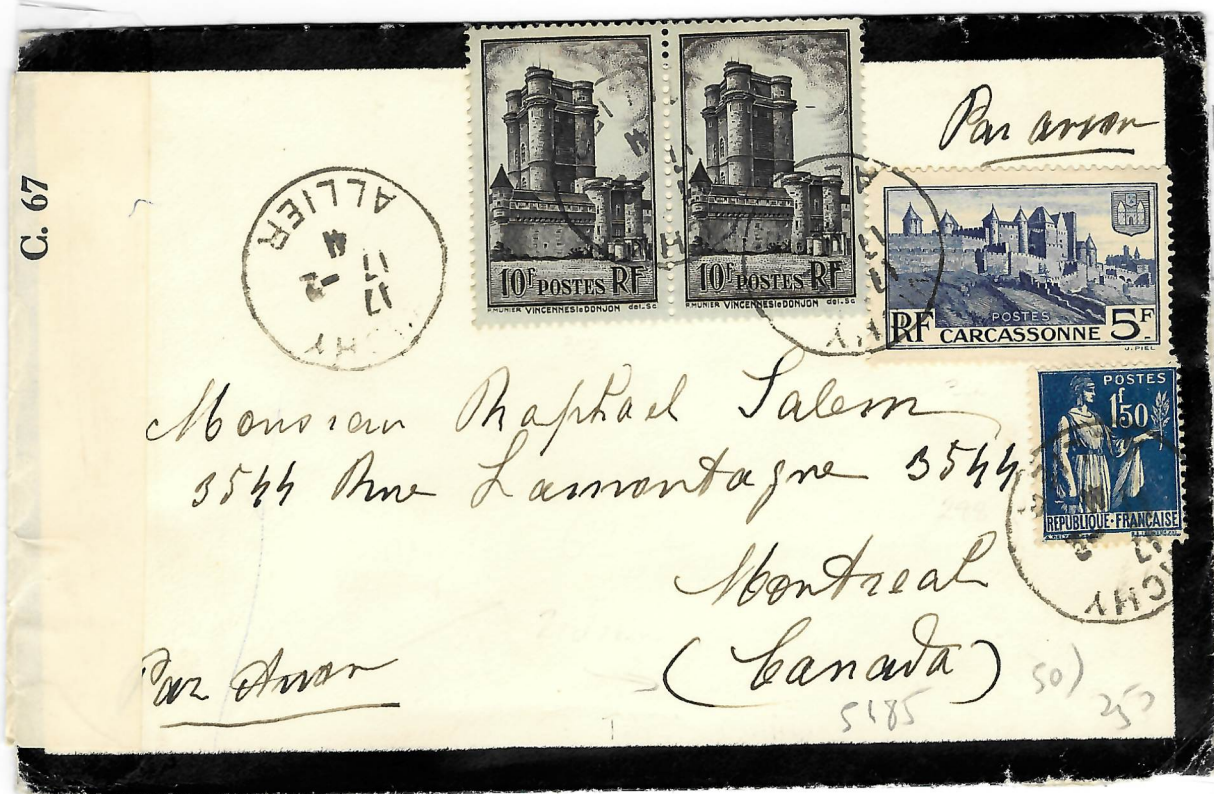 C. 67
Par avion
10f POSTES RF
P.MUNIER VINCENNES le DONJON del. Sc
10f POSTES RF
P.MUNIER VINCENNES le DONJON del. Sc
POSTES
RF CARCASSONNE 5F
J. PIEL
POSTES
1f50
REPUBLIQUE-FRANÇAISE
ALLIER
17
11
Monsieur Raphael Salem
3544 Rue Lamontagne 3544
Montreal
(Canada)
Par Avion
5185
50)
250